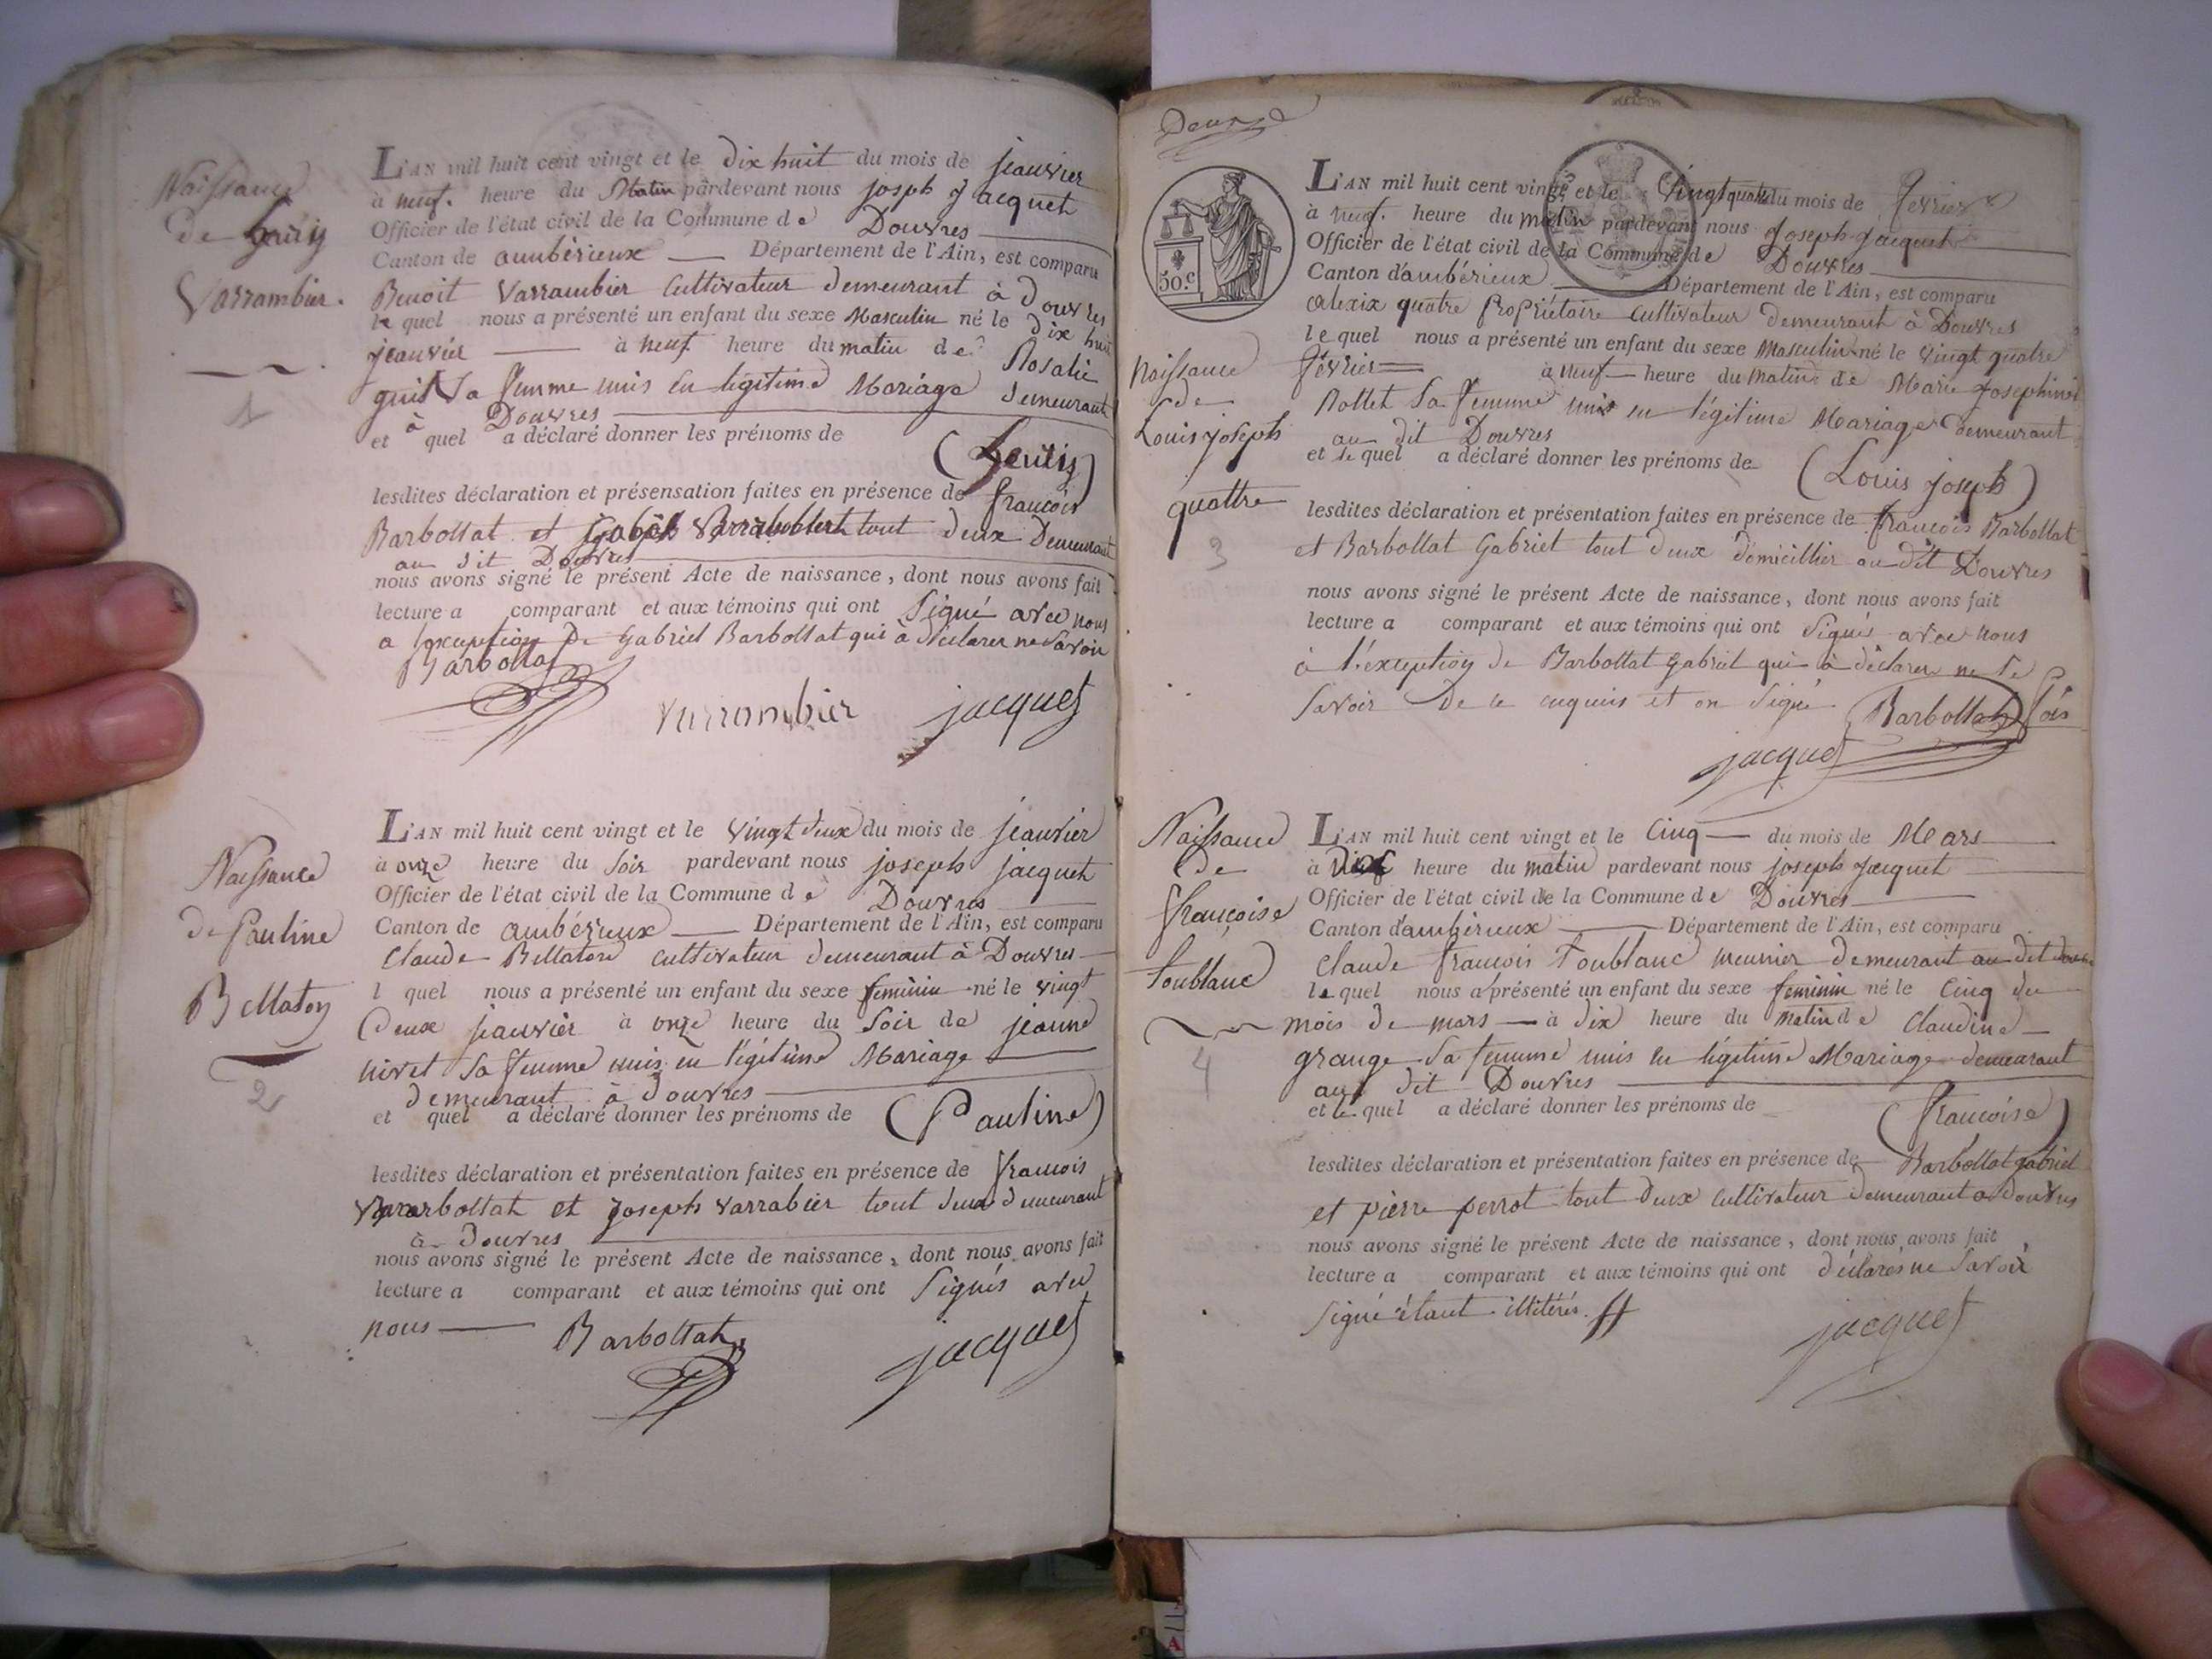 Naissance
de Louis
Varrambier.
1
L'AN mil huit cent vingt et le dix huit du mois de jeanvier
à neuf. heure du Matin pardevant nous joseph jacquet
Officier de l'état civil de la Commune de Douvres
Canton de ambérieux Département de l'Ain, est comparu
Benoit Varrambier Cultivateur demeurant à Douvres
le quel nous a présenté un enfant du sexe Masculin né le dix huit
jeanvier à neuf heure du matin de Rosalie
sa femme unis en légitime Mariage demeurant
à Douvres
et quel a déclaré donner les prénoms de
(Louis)
lesdites déclaration et présensation faites en présence de francois
Barbollat et tout deux Demeurant
au dit Douvres
nous avons signé le présent Acte de naissance, dont nous avons fait
lecture a comparant et aux témoins qui ont Signé avec nous
a lexception de Gabriel Barbollat qui à déclarer ne Savoir
Barbollat
varrambier jacquet
Naissance
de Pauline
Bellaton
2
L'AN mil huit cent vingt et le vingt deux du mois de jeanvier
à onze heure du Soir pardevant nous joseph jacquet
Officier de l'état civil de la Commune de Douvres
Canton de ambérieux Département de l'Ain, est comparu
Claude Bellaton cultivateur demeurant à Douvres
l quel nous a présenté un enfant du sexe feminin né le vingt
deux jeanvier à onze heure du Soir de jeanne
nivet Sa femme unis en légitime Mariage
demeurant à douvres
et quel a déclaré donner les prénoms de (Pauline)
lesdites déclaration et présentation faites en présence de francois
Barbollat et joseph varrabier tout deux demeurant
à douvres
nous avons signé le présent Acte de naissance, dont nous avons fait
lecture a comparant et aux témoins qui ont Signés avec
nous
Barbollat jacquet
50.c
Naissance
de
Louis joseph
quattre
3
L'AN mil huit cent vingt et le Vingt quatre du mois de fevrier
à neuf. heure du matin pardevant nous joseph jacquet
Officier de l'état civil de la Commune de Douvres
Canton d'ambérieux Département de l'Ain, est comparu
alexix quatre Propriétaire cultivateur demeurant à Douvres
le quel nous a présenté un enfant du sexe Masculin né le vingt quatre
février à neuf heure du Matin de Marie Josephine
Nollet Sa femme unis en légitime Mariage demeurant
au dit Douvres
et le quel a déclaré donner les prénoms de (Louis joseph)
lesdites déclaration et présentation faites en présence de francois Barbollat
et Barbollat Gabriel tout deux domicillier au dit Douvres
nous avons signé le présent Acte de naissance, dont nous avons fait
lecture a comparant et aux témoins qui ont Signés avec nous
à l'éxception de Barbollat Gabriel qui à déclarer ne le
Savoir De ce enquis et on Signé Barbollat fois
jacquet
Naissance
de
françoise
toublanc
4
L'AN mil huit cent vingt et le Cinq du mois de Mars
à heure du matin pardevant nous joseph jacquet
Officier de l'état civil de la Commune de Douvres
Canton d'ambérieux Département de l'Ain, est comparu
Claude francois toublanc meunier demeurant au dit
le quel nous a présenté un enfant du sexe feminin né le Cinq du
mois de mars à dix heure du Matin de Claudine
grange Sa femme unis en légitime Mariage demeurant
au dit Douvres
et le quel a déclaré donner les prénoms de (francoise)
lesdites déclaration et présentation faites en présence de Barbollat gabriel
et pierre perrot tout deux cultivateur demeurant a douvres
nous avons signé le présent Acte de naissance, dont nous avons fait
lecture a comparant et aux témoins qui ont déclarés ne Savoir
Signé étant illitérés.
jacquet